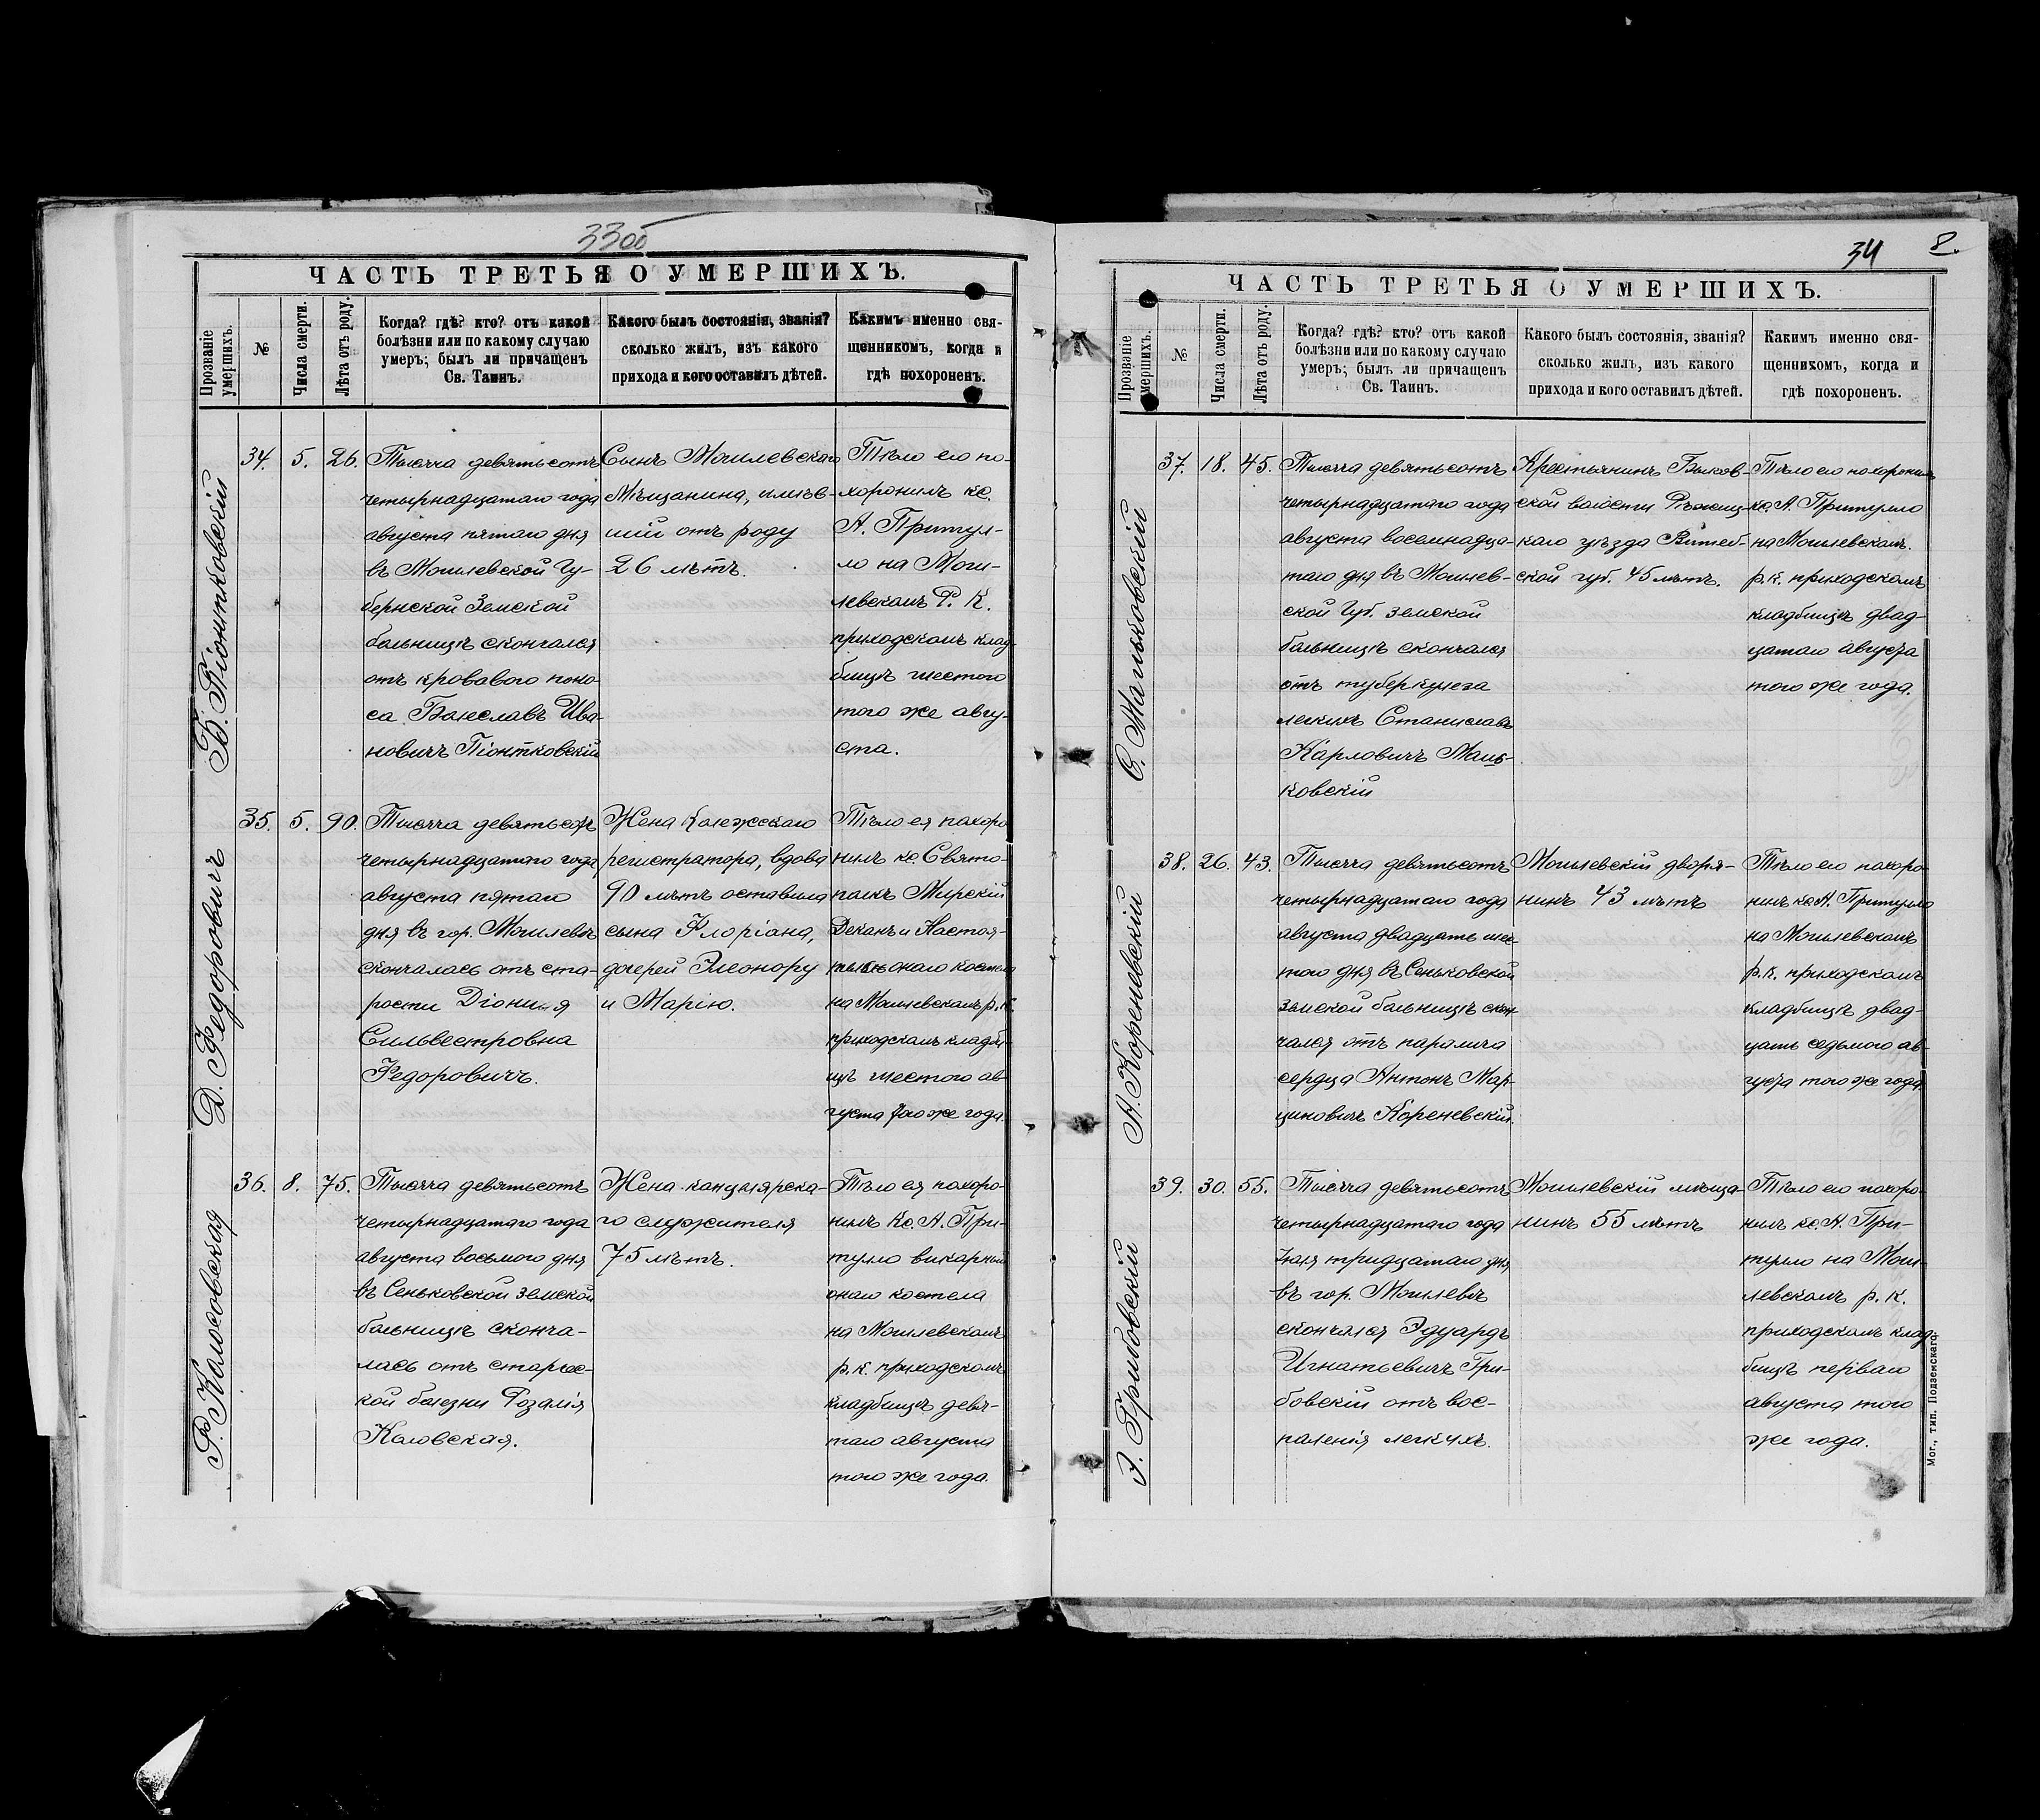 33об
ЧАСТЬ ТРЕТЬЯ О УМЕРШИХЪ.
Прозваніе умершихъ.
№
Числа смерти.
Лѣта отъ роду.
Когда? гдѣ? кто? отъ какой
болѣзни или по какому случаю
умеръ; былъ ли причащенъ
Св. Таинъ.
Какого былъ состоянія, званія?
сколько жилъ, изъ какого
прихода и кого оставилъ дѣтей.
Какимъ именно свя-
щенникомъ, когда и
гдѣ похороненъ.
Б. Піонтковскій
34. 5. 26.
Тысяча девятьсотъ
четырнадцатаго года
августа пятаго дня
въ Могилевской Гу-
бернской Земской
больницѣ скончался
отъ кроваваго поно-
са Болеславъ Ива-
новичъ Піонтковскій
Сынъ Могилевскаго
Мѣщанина, имѣв-
шій отъ роду
26 лѣтъ.
Тѣло его по-
хоронилъ кс.
А. Притул-
ло на Моги-
левскомъ Р. К.
приходскомъ клад-
бищѣ шестого
того же авгу-
ста.
Д. Федоровичъ
35. 5. 90.
Тысяча девятьсотъ
четырнадцатаго года
августа пятаго
дня въ гор. Могилевѣ
скончалась отъ ста-
рости
Сильвестровна
Федоровичъ.
Жена Колежскаго
регистратора, вдова
90 лѣтъ оставила
сына Флоріана,
дочерей Элеонору
и Марію.
Тѣло ея похоро
нилъ кс. Свято-
полкъ Мирскій
Деканъ и Настоя-
тель онаго костела
на Могилевскомъ р. к.
приходскомъ кладби-
щѣ шестого ав-
густа того же года.
Р. Колосовская
36. 8. 75.
Тысяча девятьсотъ
четырнадцатаго года
августа восьмого дня
въ Сеньковской земской
больницѣ сконча-
лась отъ старчес-
кой болезни Розалія
Коловская.
Жена канцелярска-
го служителя
75 лѣтъ.
Тѣло ея похоро-
нилъ Кс. А. При-
тулло викарный
онаго костела
на Могилевскомъ
р. к. приходскомъ
кладбищѣ девя-
таго августа
того же года.
34
8.
ЧАСТЬ ТРЕТЬЯ О УМЕРШИХЪ.
Прозваніе умершихъ.
№
Числа смерти.
Лѣта отъ роду.
Когда? гдѣ? кто? отъ какой
болѣзни или по какому случаю
умеръ; былъ ли причащенъ
Св. Таинъ.
Какого былъ состоянія, званія?
сколько жилъ, изъ какого
прихода и кого оставилъ дѣтей.
Какимъ именно свя-
щенникомъ, когда и
гдѣ похороненъ.
С. Маньковскій
37. 18. 45.
Тысяча девятьсотъ
четырнадцатаго года
августа восемнадца-
таго дня въ Могилев-
ской Губ. земской
больницѣ скончался
отъ туберкулеза
легкихъ Станиславъ
Карловичъ Мань-
ковскій
Крестьянинъ Быков-
ской волости Рѣжиц-
каго уѣзда Витеб-
ской губ. 45 лѣтъ.
Тѣло его похоронилъ
кс. А. Притулло
на Могилевскомъ
р. к. приходскомъ
кладбищѣ двад-
цатаго августа
того же года.
А. Кореневскій
38. 26. 43.
Тысяча девятьсотъ
четырнадцатаго года
августа двадцать шес-
того дня въ Сеньковской
земской больницѣ скон-
чался отъ паралича
сердца Антонъ Мар-
циновичъ Кореневскій.
Могилевскій дворя-
нинъ 43 лѣтъ
Тѣло его похоро-
нилъ кс. А. Притулло
на Могилевскомъ
р. к. приходскомъ
кладбищѣ двад-
цать седьмого ав-
густа того же года.
Э. Грибовскій
39. 30. 55.
Тысяча девятьсотъ
четырнадцатаго года
Іюля тридцатаго дня
въ гор. Могилевѣ
скончался Эдуардъ
Игнатьевичъ Гри-
бовскій отъ вос-
паленія легкихъ.
Могилевскій мѣща-
нинъ 55 лѣтъ
Тѣло его похоро-
нилъ кс. А. При-
тулло на Моги-
левскомъ р. к.
приходскомъ клад-
бищѣ перваго
августа того
же года.
Мог., тип. Подземскаго.